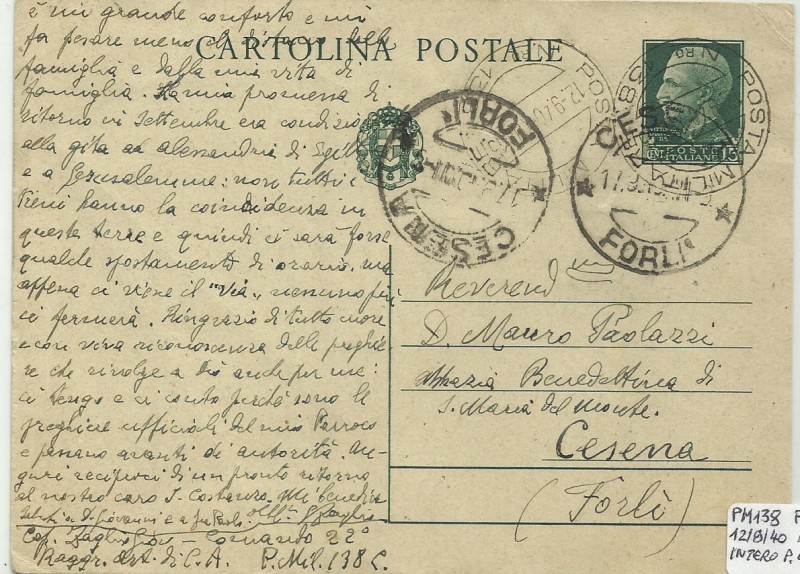 è mi grande conforto e mi
fa pesare meno la distanza dalla
famiglia e dalla mia vita di
famiglia. La mia promessa di
ritorno in Settembre era condizio
alla gita ad alessandria di Egitto
e a Gerusalemme: non tutti i
treni hanno la coincidenza in
queste terre e quindi ci sarà forse
qualche spostamento di orario, ma
appena ci viene il "via" nessuno più
ci fermerà. Ringrazio di tutto cuore
e con viva riconoscenza delle preghie
re che rivolge a Dio anche per me:
ci tengo e ci conto perché sono le
preghiere ufficiali del mio Parroco
e passano avanti di autorità. Au-
guri reciproci di un pronto ritorno
al nostro caro S. Costanzo. Mi benedica
Saluti a D. Giovanni e a
Cap. - Comando 22°
Raggr. art. di C. A. P. Mil. 138 C.
CARTOLINA POSTALE
POSTE ITALIANE 15
POSTA MILITARE
N. 89
12-9-40
CESENA FORLI'
CESENA FORLI'
Reverend
D. Mauro Paolazzi
abbazia Benedettina di
S. Maria del Monte.
Cesena
(Forlì)
PM138
12/9/40
INTERO P.